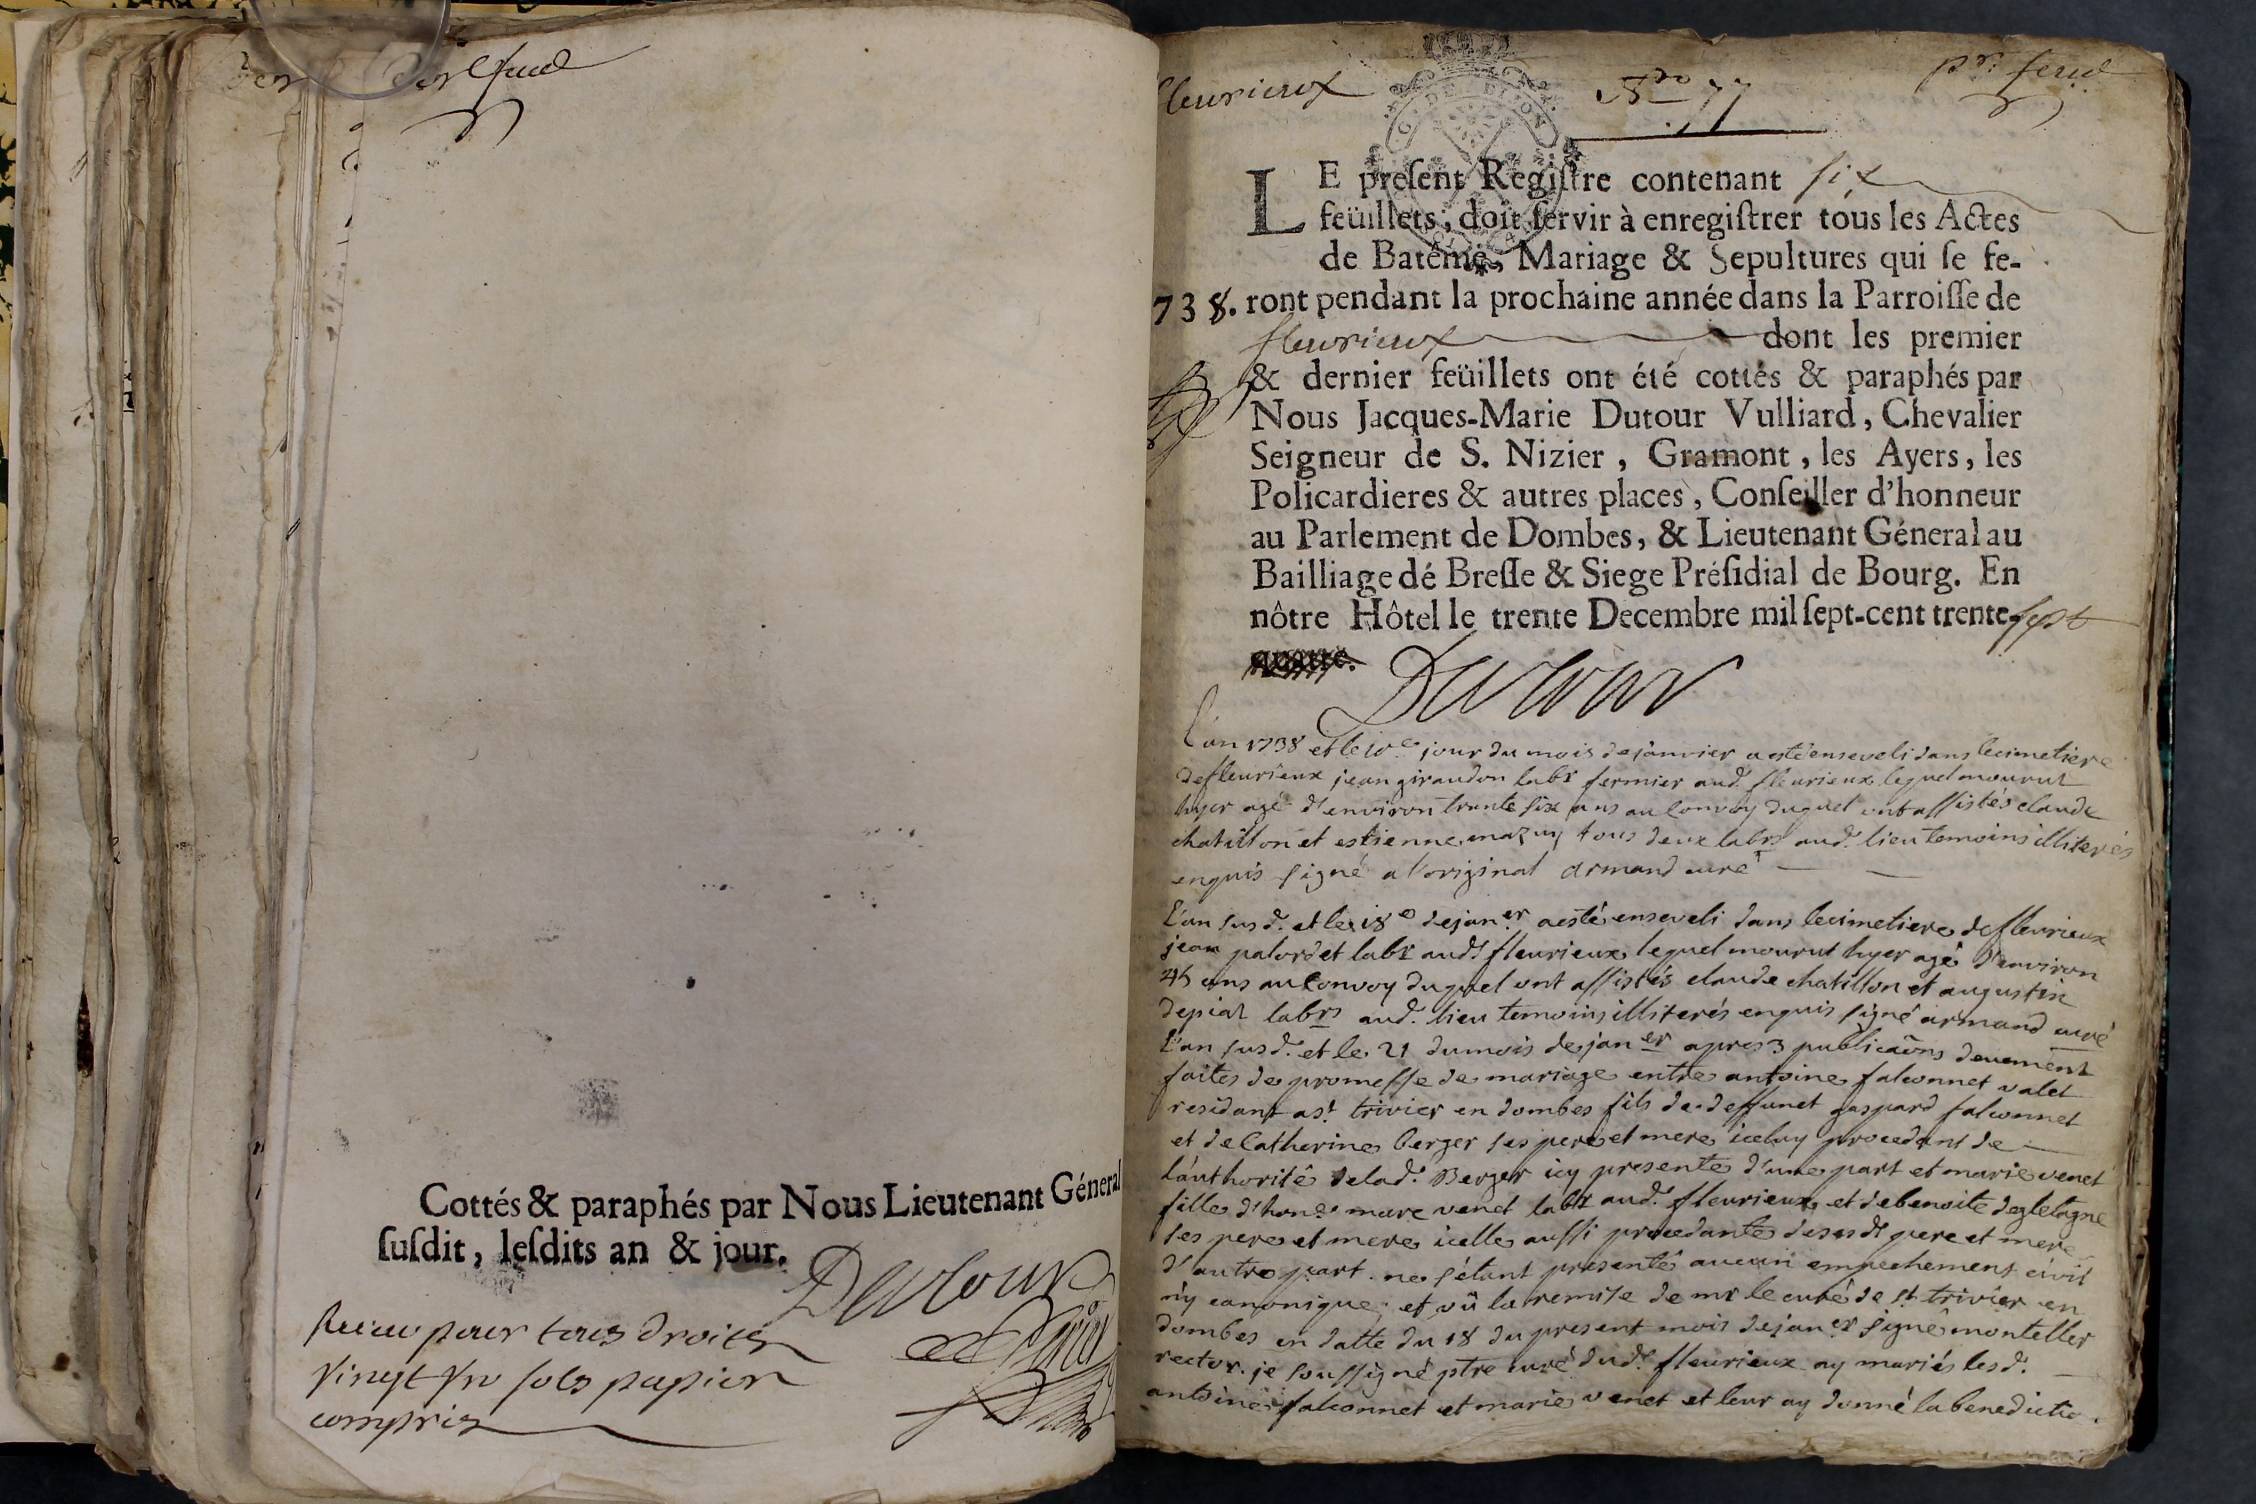 Cottés & paraphés par Nous Lieutenant Géneral
ſuſdit, leſdits an & jour.
Dutour
Receu pour tous droits
vingt un sols papier
compris
fleurieux
N.ro 77
G. DE DIJON
LE preſent Regiſtre contenant six
feüillets, doit ſervir à enregiſtrer tous les Actes
de Batême, Mariage & Sepultures qui ſe fe-
738. ront pendant la prochaine année dans la Parroiſſe de
fleurieux dont les premier
& dernier feüillets ont été cottés & paraphés par
Nous Jacques-Marie Dutour Vulliard, Chevalier
Seigneur de S. Nizier, Gramont, les Ayers, les
Policardieres & autres places, Conſeiller d'honneur
au Parlement de Dombes, & Lieutenant Géneral au
Bailliage dé Breſſe & Siege Préſidial de Bourg. En
nôtre Hôtel le trente Decembre mil ſept-cent trente sept
Dutour
L'an 1738 et le 10e jour du mois de janvier a esté enseveli dans le cimetiere
de fleurieux jean giraudon labr fermier aud. fleurieux lequel mourut
hyer agé d'environ trente six ans au convoy duquel ont assistés claude
chatillon et estienne mazuy tous deux labrs aud. lieu temoins illiterés
enquis signé a l'original armand curé
L'an susd. et le 18e de janer a esté enseveli dans le cimetiere de fleurieux
jean palordet labr aud. fleurieux lequel mourut hyer agé d'environ
45 ans au convoy duquel ont assistés claude chatillon et augustin
depiat labrs aud. lieu temoins illiterés enquis signé armand curé
L'an susd. et le 21 du mois de janer apres 3 publicaõns deuement
faites de promesse de mariage entre antoine falconnet valet
residant a st trivier en dombes fils de deffunct gaspard falconnet
et de Catherine berger ses pere et mere iceluy procedant de
l'authorité de lad. Berger icy presente d'une part et marie venet
fille d'hone marc venet labr aud. fleurieux et de benoite degletagne
ses pere et mere icelle aussi procedante desusdt pere et mere
d'autre part. ne s'étant presenté aucun empechement civil
ny canonique, et vû la remise de mr le curé de st trivier en
dombes en datte du 18 du present mois de janer signé monteller
rector. je soussigné ptre curé dud. fleurieux ay mariés lesd.
antoine falconnet et marie venet et leur ay donné la benedictio